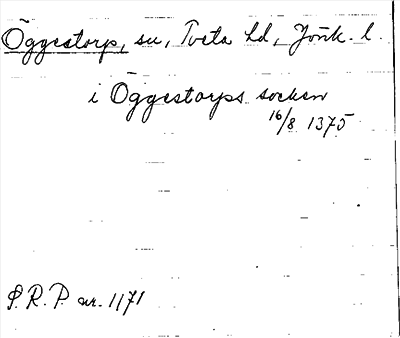 Öggestorp, sn, Tveta hd, Jönk. l.
i Öggestorps socken
16/8 1375
S.R.P. nr. 1171